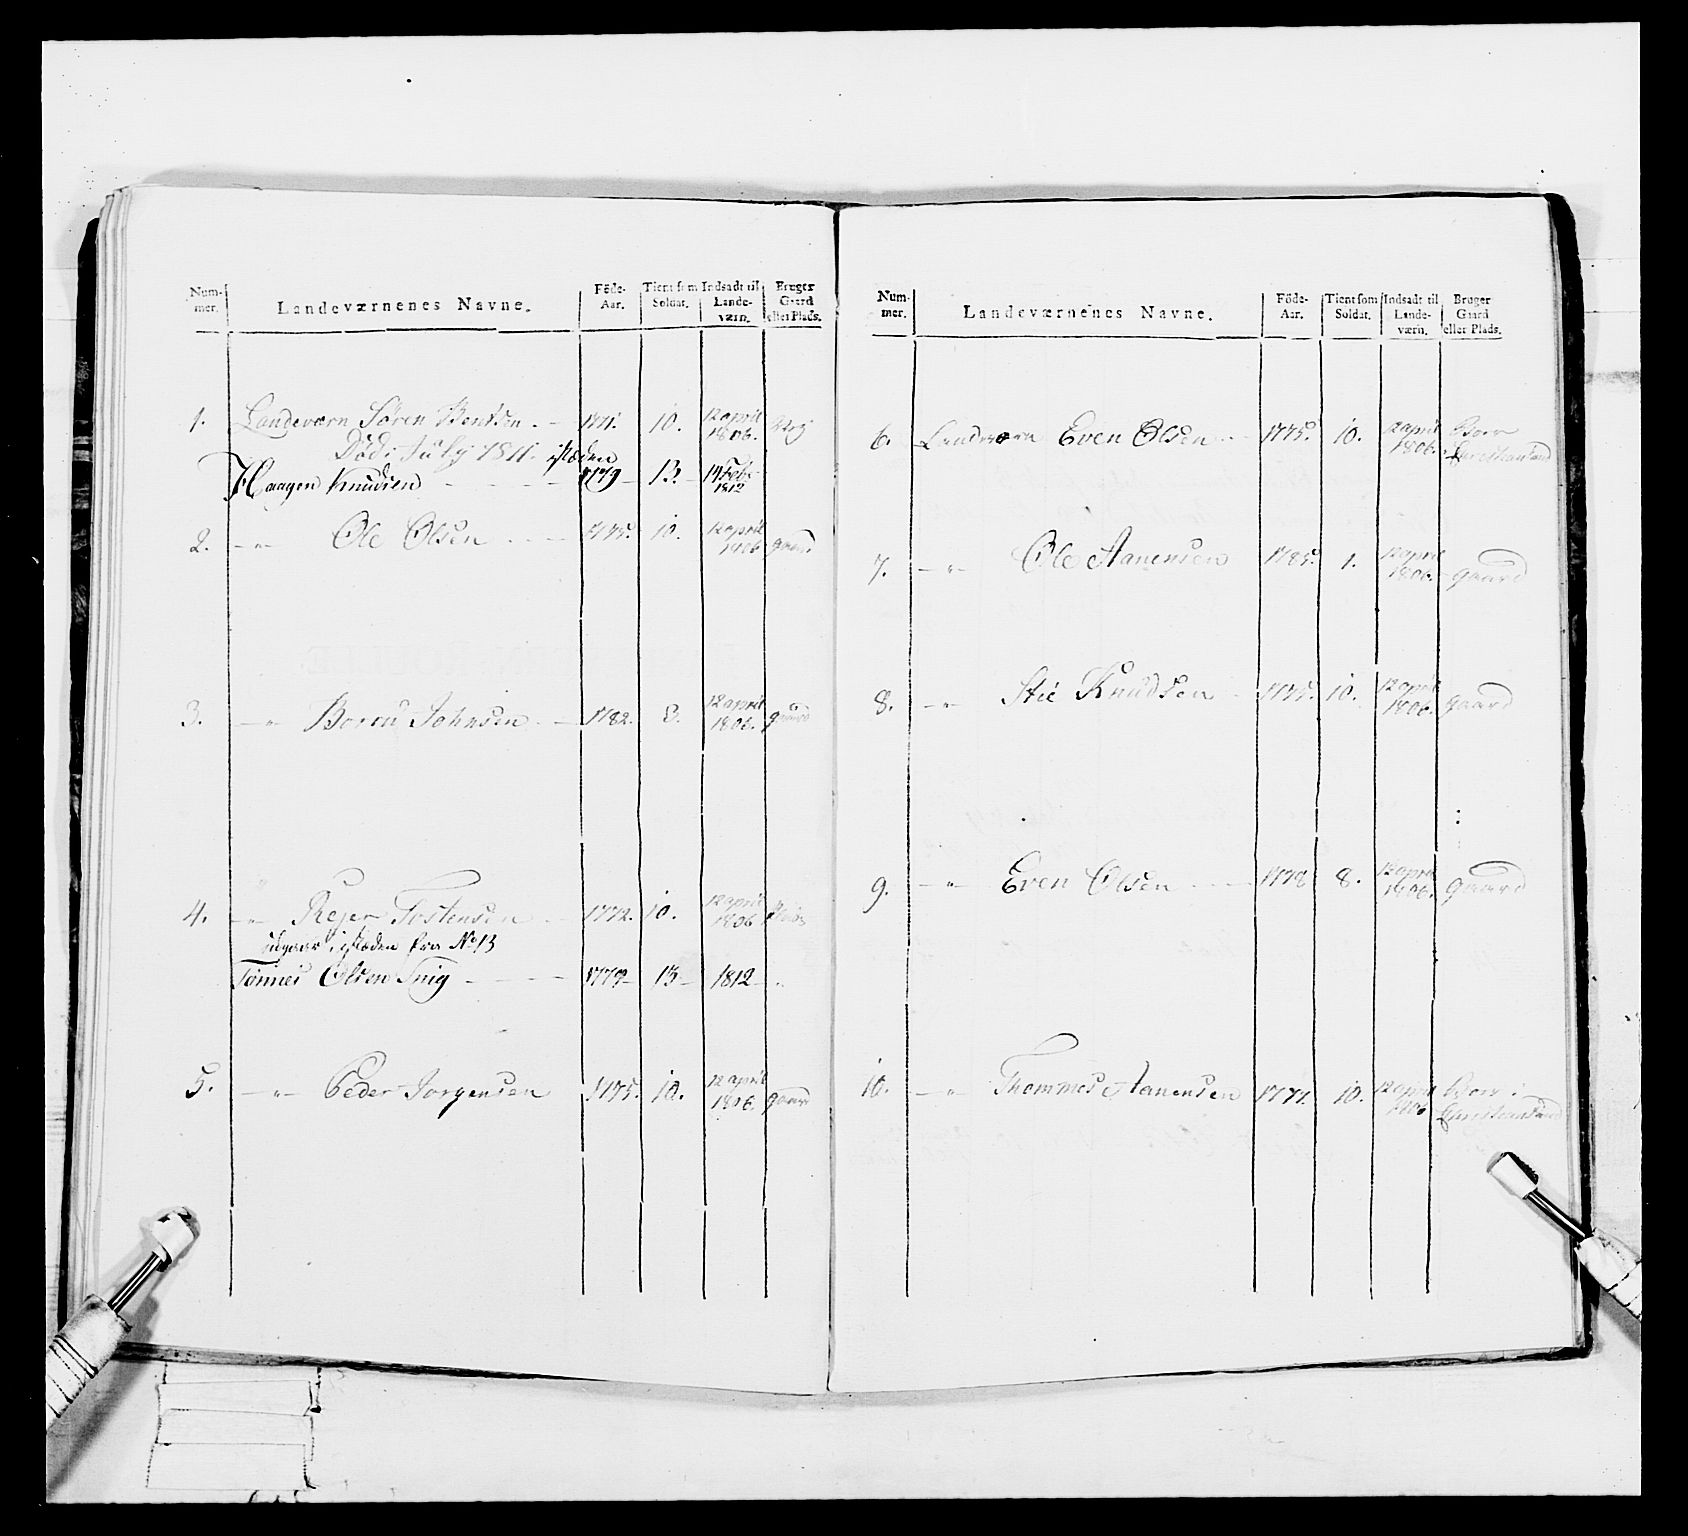 Num- mer. Landeværnenes Navne. Föde- Aar. Tient som Soldat. Indsadt til Lande- værn. Bruger Gaard eller Plads.
1. Landeværn Sören Bentsen 1771. 10. 12 april 1806.
Död i July 1811. istæden
Haagen Knudsen 1779 13. 14 Feb: 1812
2. — " — Ole Olsen 1775. 10. 12 april 1806 gaard
3. — " Johnsen 1782. 8. 12 april 1806. gaard
4. — " — Rejer Tostensen 1772. 10. 12 april 1806
udgaar, istæden fra No 13
Tönnes Olsen 1779 13 1812
5. — " — Peder Jorgensen 1775. 10. 12 april 1806. gaard
Num- mer. Landeværnenes Navne. Föde- Aar. Tient som Soldat. Indsadt til Lande- værn. Bruger Gaard eller Plads.
6. Landeværn Even Olsen 1775. 10. 12 april 1806. Boer Christiansand
7. — " — Ole Aanensen 1785. 1. 12 april 1806. gaard
8. — " — Knudsen 1775. 10. 12 april 1806. gaard
9. — " — Even Olsen 1778 8. 12 april 1806. gaard
10. — " Thommes Aanensen 1777. 10. 12 april 1806 Boer i Christiansand